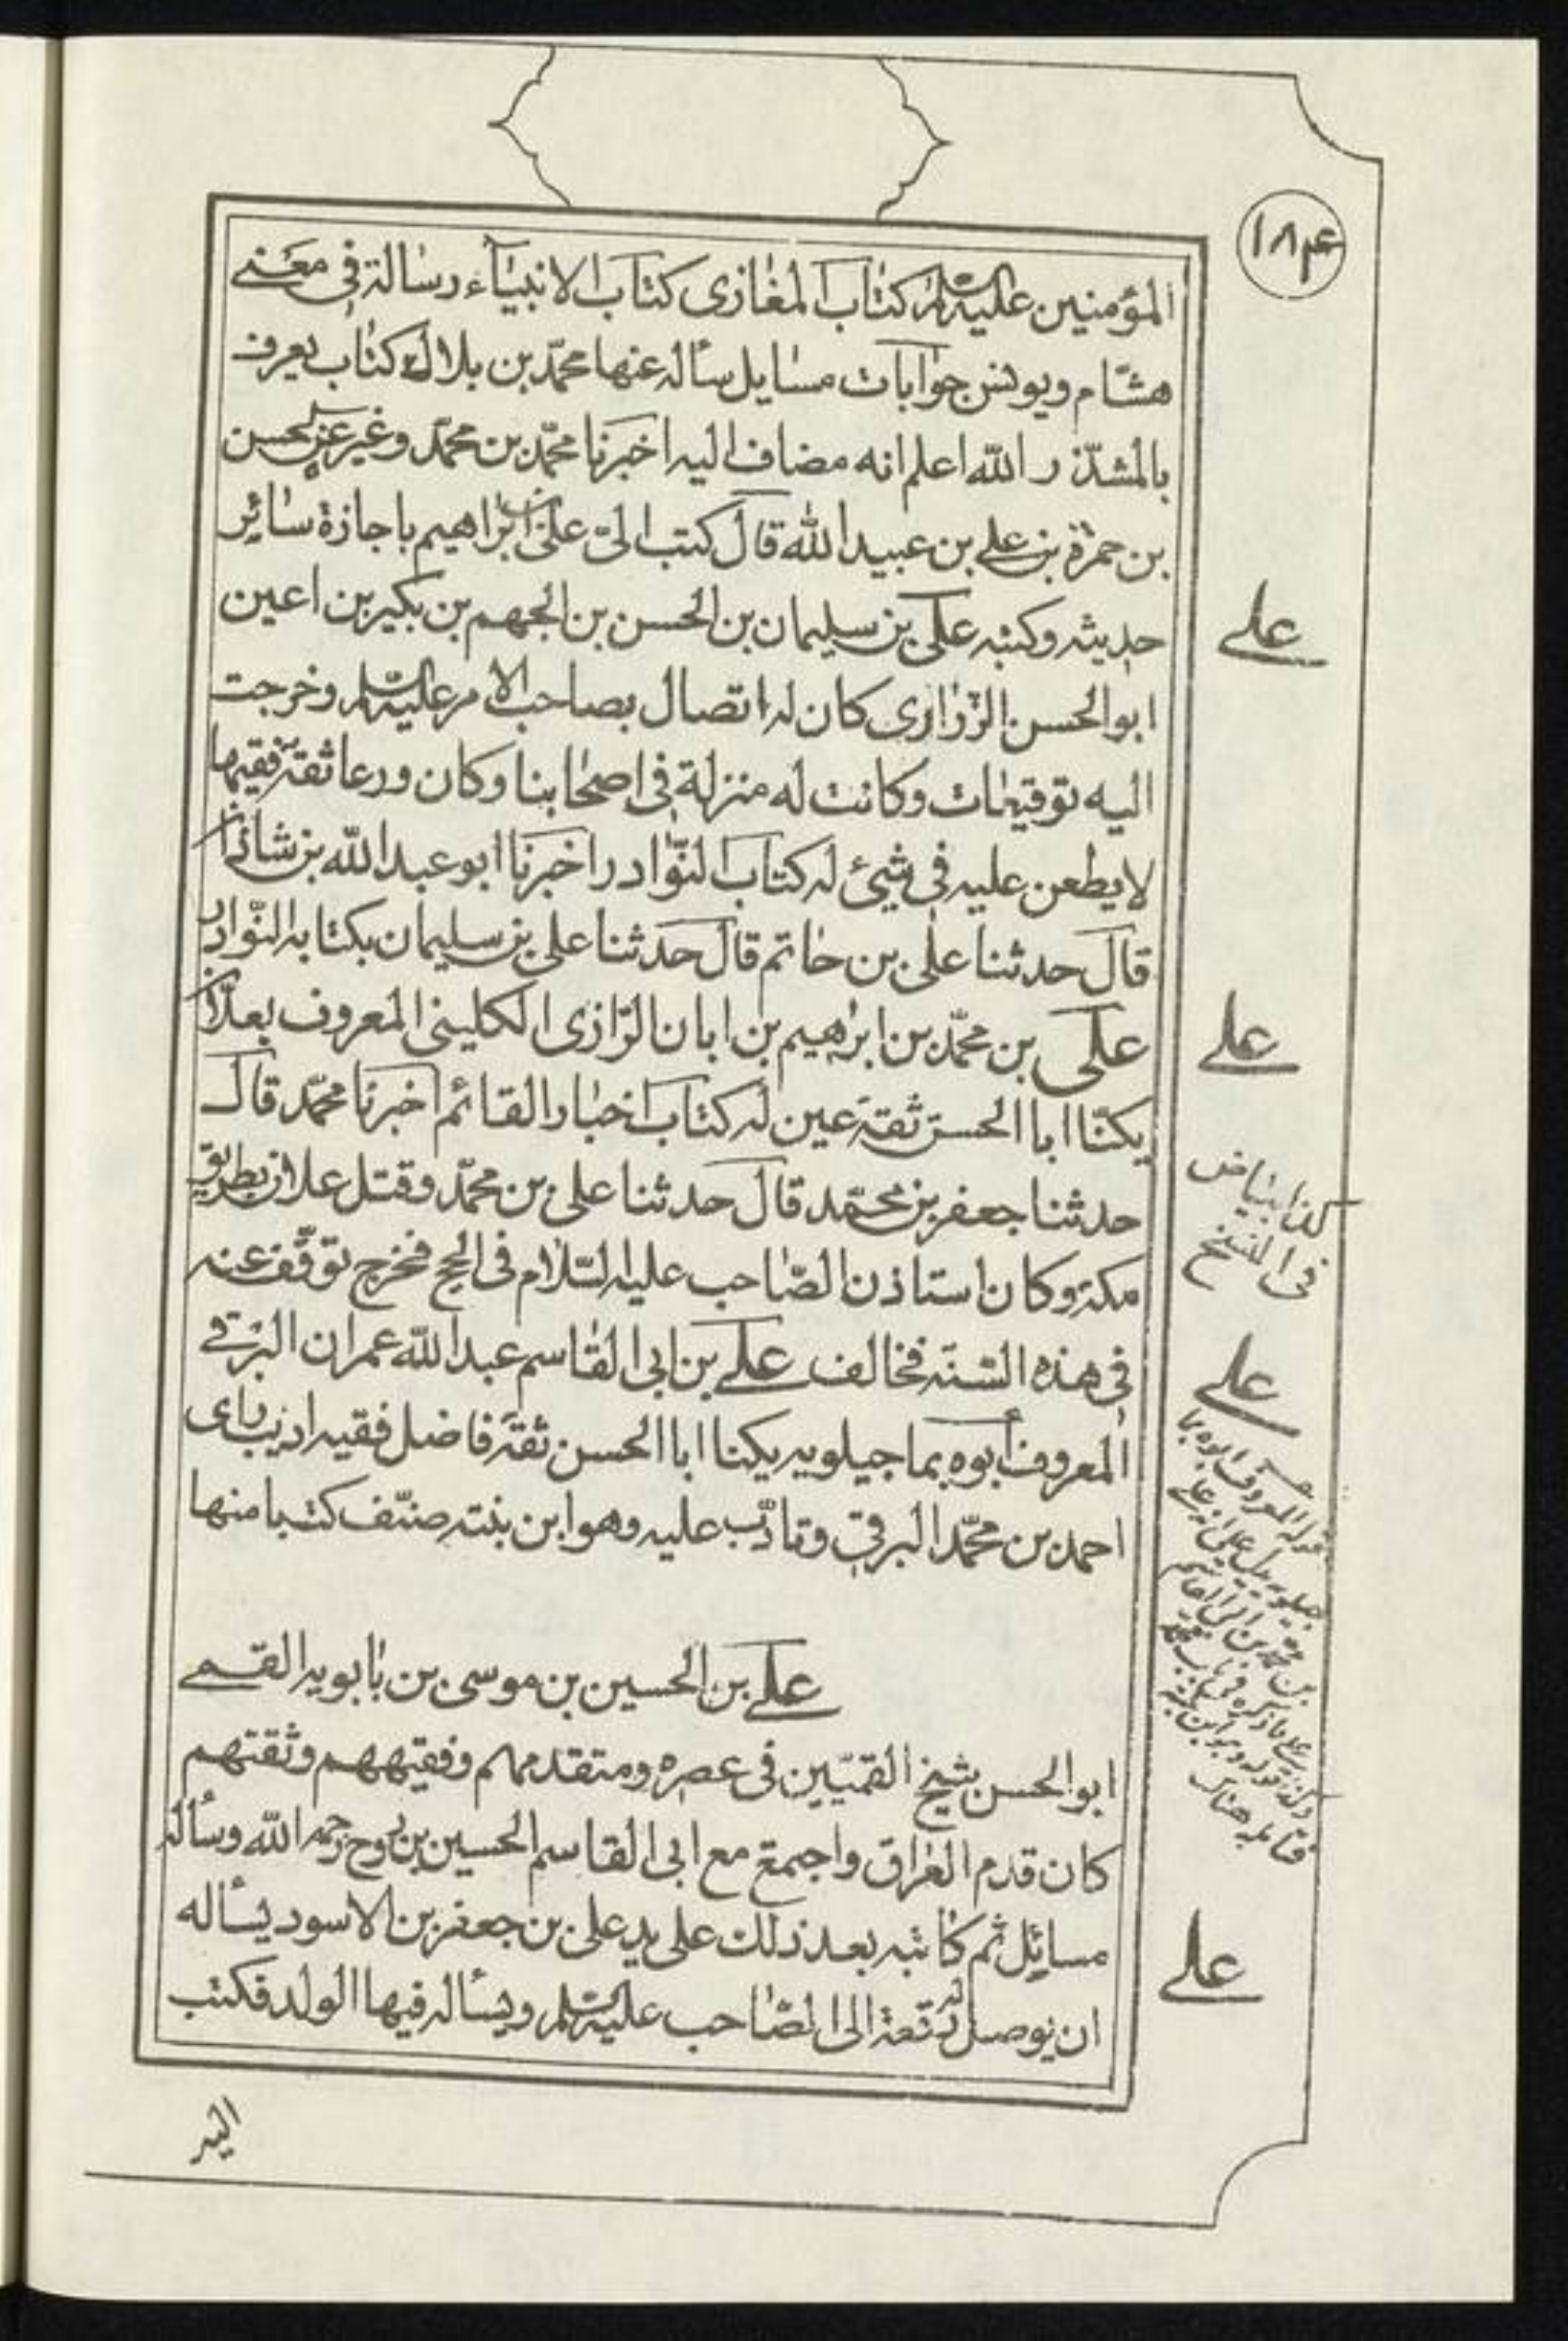 ١٨٤
المؤمنين عليه السلم كتاب المغازى كتاب الانبيآء رسالة في معنى
هشام ويونس جوابات مسايل سأله عنها محمّد بن بلال كتاب يعرف
بالمشذّر الله اعلم انه مضاف اليه اخبرنا محمّد بن محمّد وغيره عن الحسن
بن حمزة بن علي بن عبيد الله قال كتب الىّ علي بن ابراهيم باجازة سائر
حديثه وكتبه على بن سليمان بن الحسن بن الجهم بن بكير بن اعين
ابو الحسن الزّرارى كان له اتصال بصاحب الامر عليه السلم وخرجت
اليه توقيعات وكانت له منزلة في اصحابنا وكان ورعا ثقة فقيها
لا يطعن عليه في شيئ له كتاب النّوادر اخبرنا ابو عبد الله بن شاذان
قال حدثنا على بن حاتم قال حدثنا على بن سليمان بكتابه النّوادر
على بن محمّد بن ابرهيم بن ابان الرّازى الكلينى المعروف بعلّان
يكنّا ابا الحسن ثقة عين له كتاب اخبار القائم اخبرنا محمّد قال
حدثنا جعفر بن محمّد قال حدثنا على بن محمّد وقتل علان بطريق
مكة وكان استاذن الصّاحب عليه السّلام في الحج فخرج توقّف عنه
في هذه السّنة فخالف علي بن ابى القاسم عبد الله عمران البرقي
المعروف أبوه بماجيلويه يكنا ابا الحسن ثقة فاضل فقيه اديب راى
احمد بن محمّد البرقي وتادّب عليه وهو ابن بنته صنّف كتبا منها
علي بن الحسين بن موسى بن بابويه القمي
ابو الحسن شيخ القميّين في عصره ومتقدمهم وفقيههم وثقتهم
كان قدم العراق واجتمع مع ابى القاسم الحسين بن روح رحمه الله وسأله
مسائل ثم كاتبه بعد ذلك على يد على بن جعفر بن الاسود يسأله
ان يوصل له رقعة الى الصّاحب عليه السلم ويسأله فيها الولد فكتب
اليه
علي
علي
كذا بياض
في النسخ
علي
قوله المعروف ابوه بما
جيلويه يدل على ان
علي